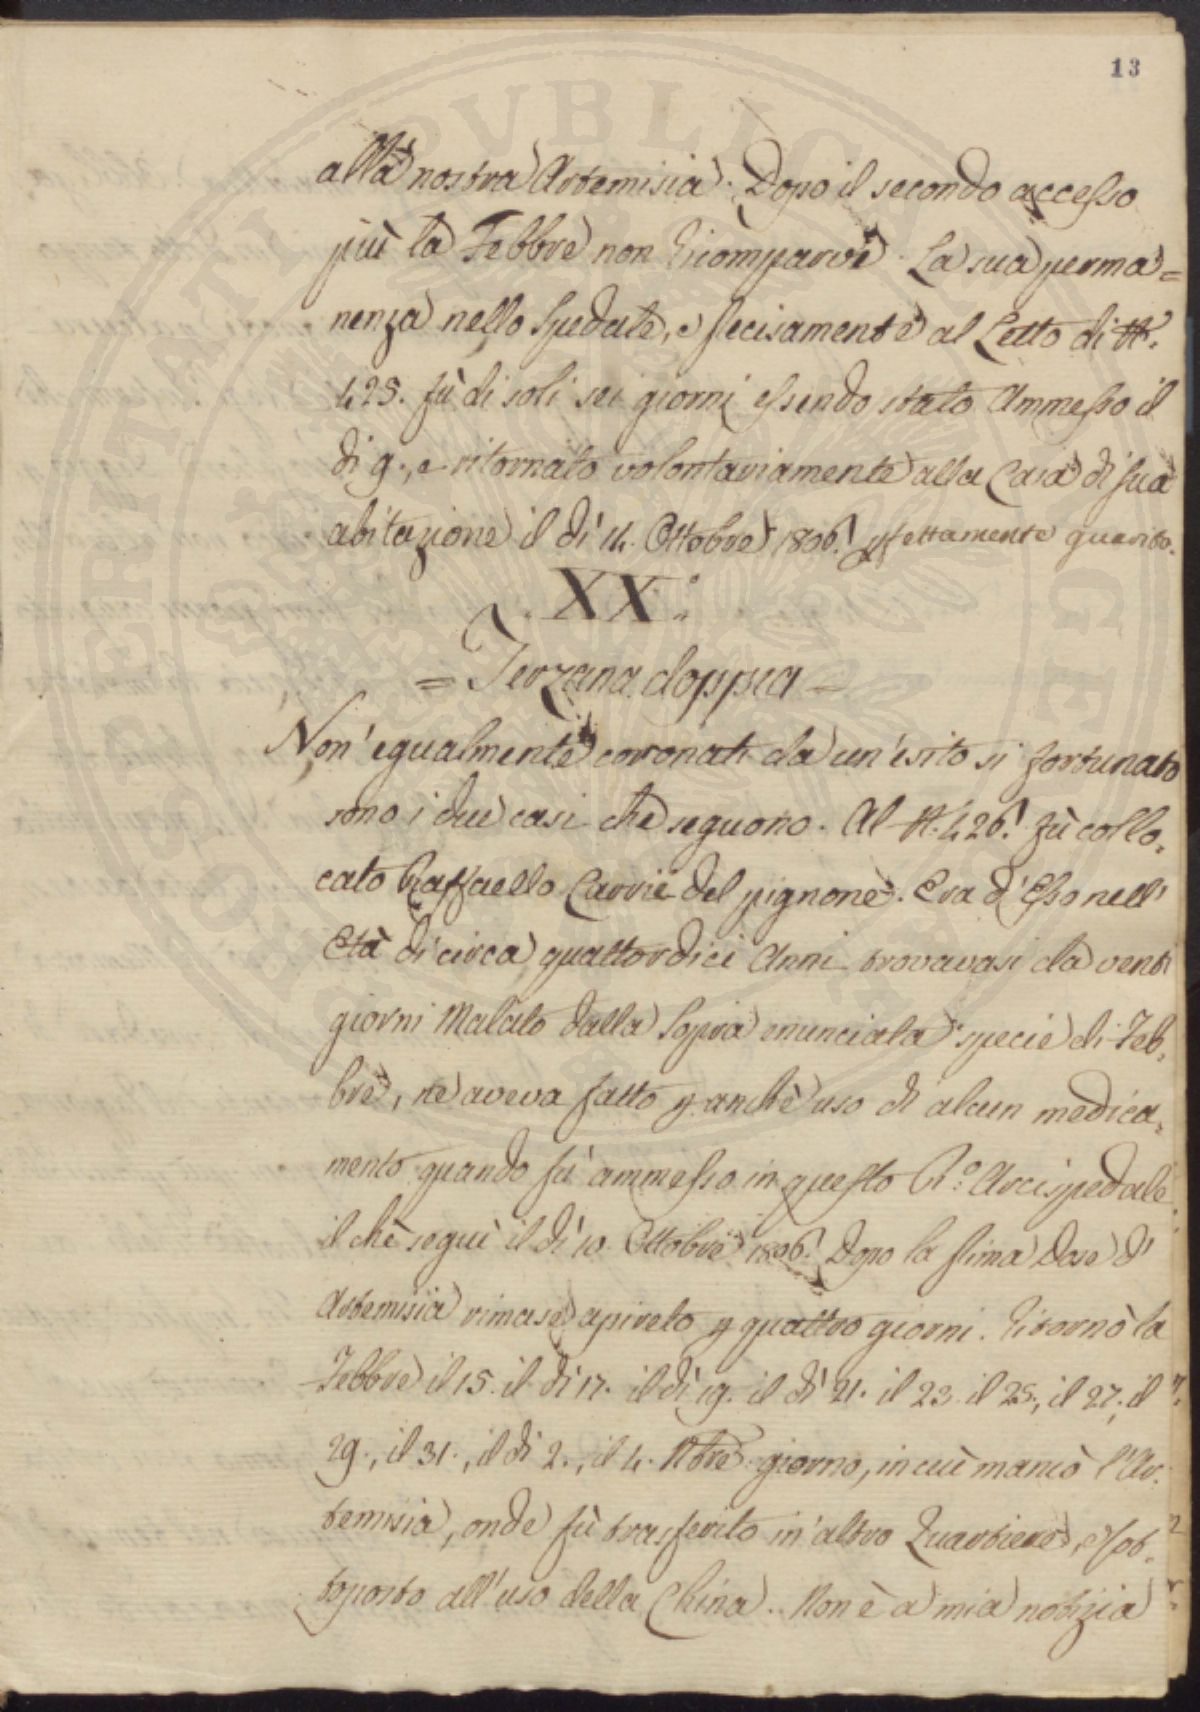 13
alla nostra Artemisia. Dopo il secondo accesso
più la Febbre non Ricomparve. La sua perma=
nenza nello Spedale, e precisamente al Letto di N.°
425. fù di soli sei giorni essendo stato Ammesso il
di 9., e ritornato volontariamente alla Casa di sua
abitazione il dì 14. Ottobre 1806. pfettamente guarito.
XX.°
= Terzana doppia =
Non' egualmente coronati da un'esito si fortunato
sono i due casi che seguono. Al N. 426. fù collo=
cato Raffaello Carrie del pignone. Era d'Esso nell'
Età di circa quattordici Anni trovavasi da venti
giorni Malato dalla Sopra enunciata specie di Feb=
bre, ne aveva fatto p anche uso di alcun medica=
mento quando fù ammesso in questo R.° Arcispedale
il chè seguì il dì 10. Ottobre 1806. Dopo la prima Dose di
Artemisia rimase apireto p quattro giorni. Ritornò la
Febbre il 15. il dì 17. il dì 19. il dì 21. il 23. il 25., il 27., il
29., il 31., il dì 2., il 4. Nbre giorno, in cui mancò l'Ar=
temisia, onde fù trasferito in'altro Quartiere, e Sot=
toposto all'uso della China. Non è a mia notizia